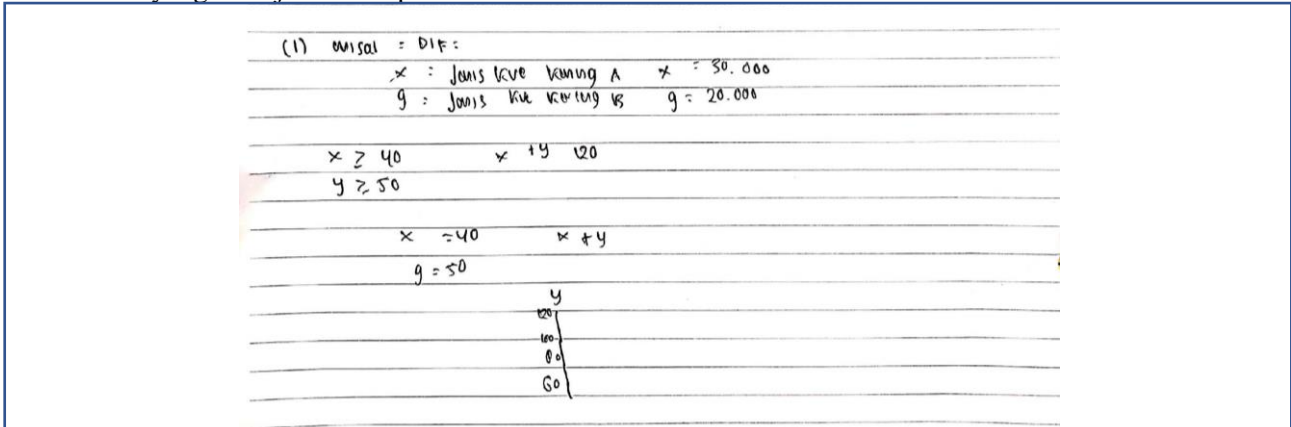 (1) misal : DIF :
x : Jenis kue kering A x = 30.000
y : Jenis kue kering B y = 20.000
x ≥ 40 x + y 120
y ≥ 50
x = 40 x + y
y = 50
y
120
100
80
60